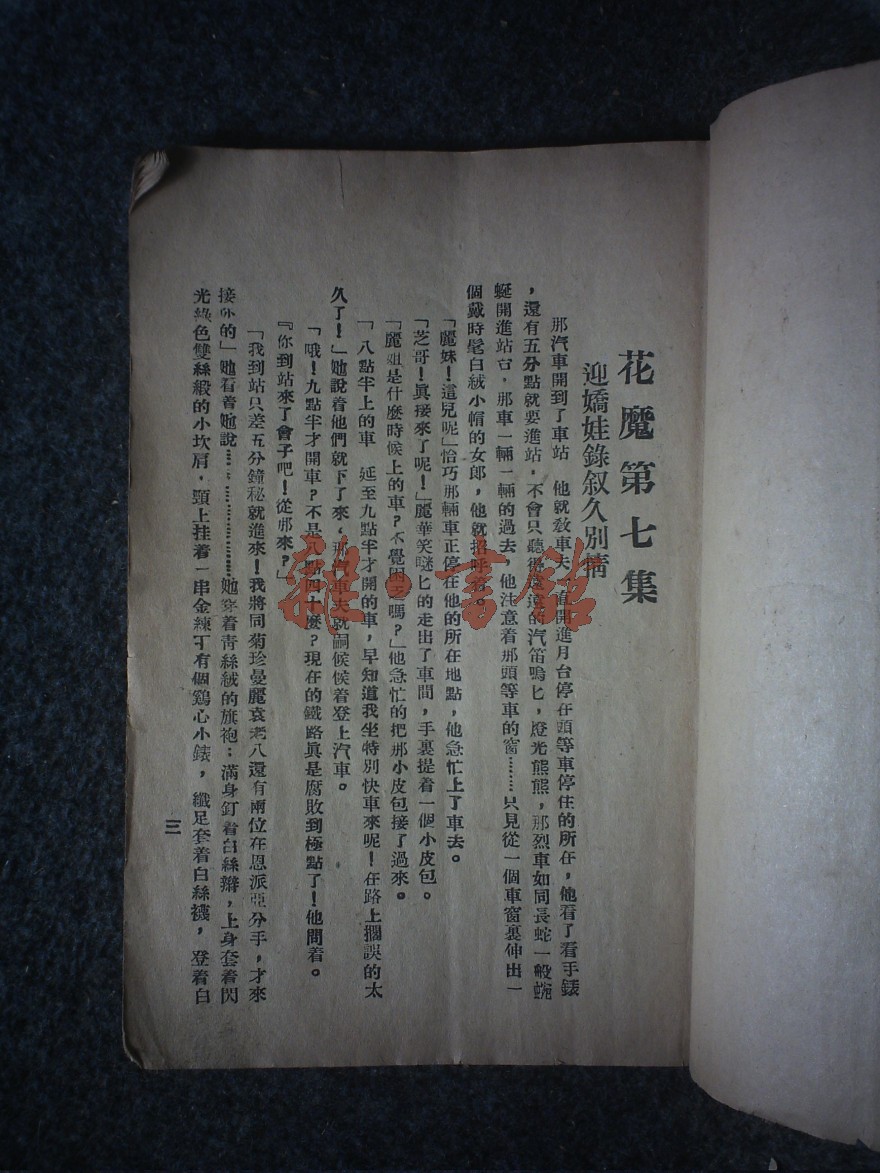 花魔第七集
迎嬌娃錄叙久別情
那汽車開到了車站 他就敎車夫一直開進月台停在頭等車停住的所在，他看了看手錶
，還有五分點就要進站，不會只聽得遠遠的汽笛嗚匕，燈光熊熊，那烈車如同長蛇一般蜿
蜒開進站台，那車一輛一輛的過去，他注意着那頭等車的窗………只見從一個車窗裏伸出一
個戴時髦白絨小帽的女郎，他就招呼着。
「麗妹！這兒呢」恰巧那輛車正停在他的所在地點，他急忙上了車去。
「芝哥！眞接來了呢！」麗華笑謎匕的走出了車間，手裏提着一個小皮包。
「麗姐是什麼時候上的車？不覺困乏嗎？」他急忙的把那小皮包接了過來。
「八點半上的車 延至九點半才開的車，早知道我坐特別快車來呢！在路上擱誤的太
久了！」她說着他們就下了來，那汽車夫就嗣候候着登上汽車。
「哦！九點半才開車？不是八點四十麼？現在的鐵路眞是腐敗到極點了！他問着。
『你到站來了會子吧！從那來？」
「我到站只差五分鐘秘就進來！我將同菊珍曼麗袁老八還有兩位在恩派亞分手，才來
接你的」她看着她說………………她穿着靑絲絨的旗袍：滿身釘着白絲辮，上身套着閃
光綠色雙絲緞的小坎肩，頸上挂着一串金練丁有個鷄心小錶，纖足套着白絲襪，登着白
三
雜·書館